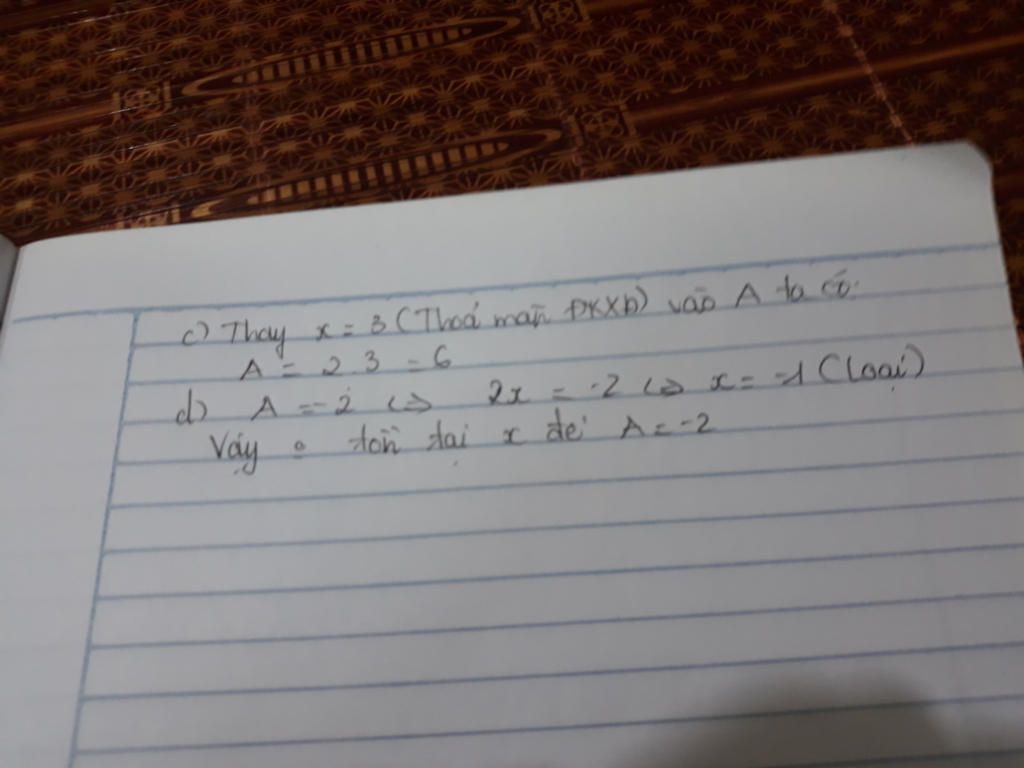 c) Thay x = 3 (Thoả mãn ĐKXĐ) vào A ta có:
A = 2.3 = 6
d) A = -2 <=> 2x = -2 <=> x = -1 (loại)
Vậy o tồn tại x để A = -2